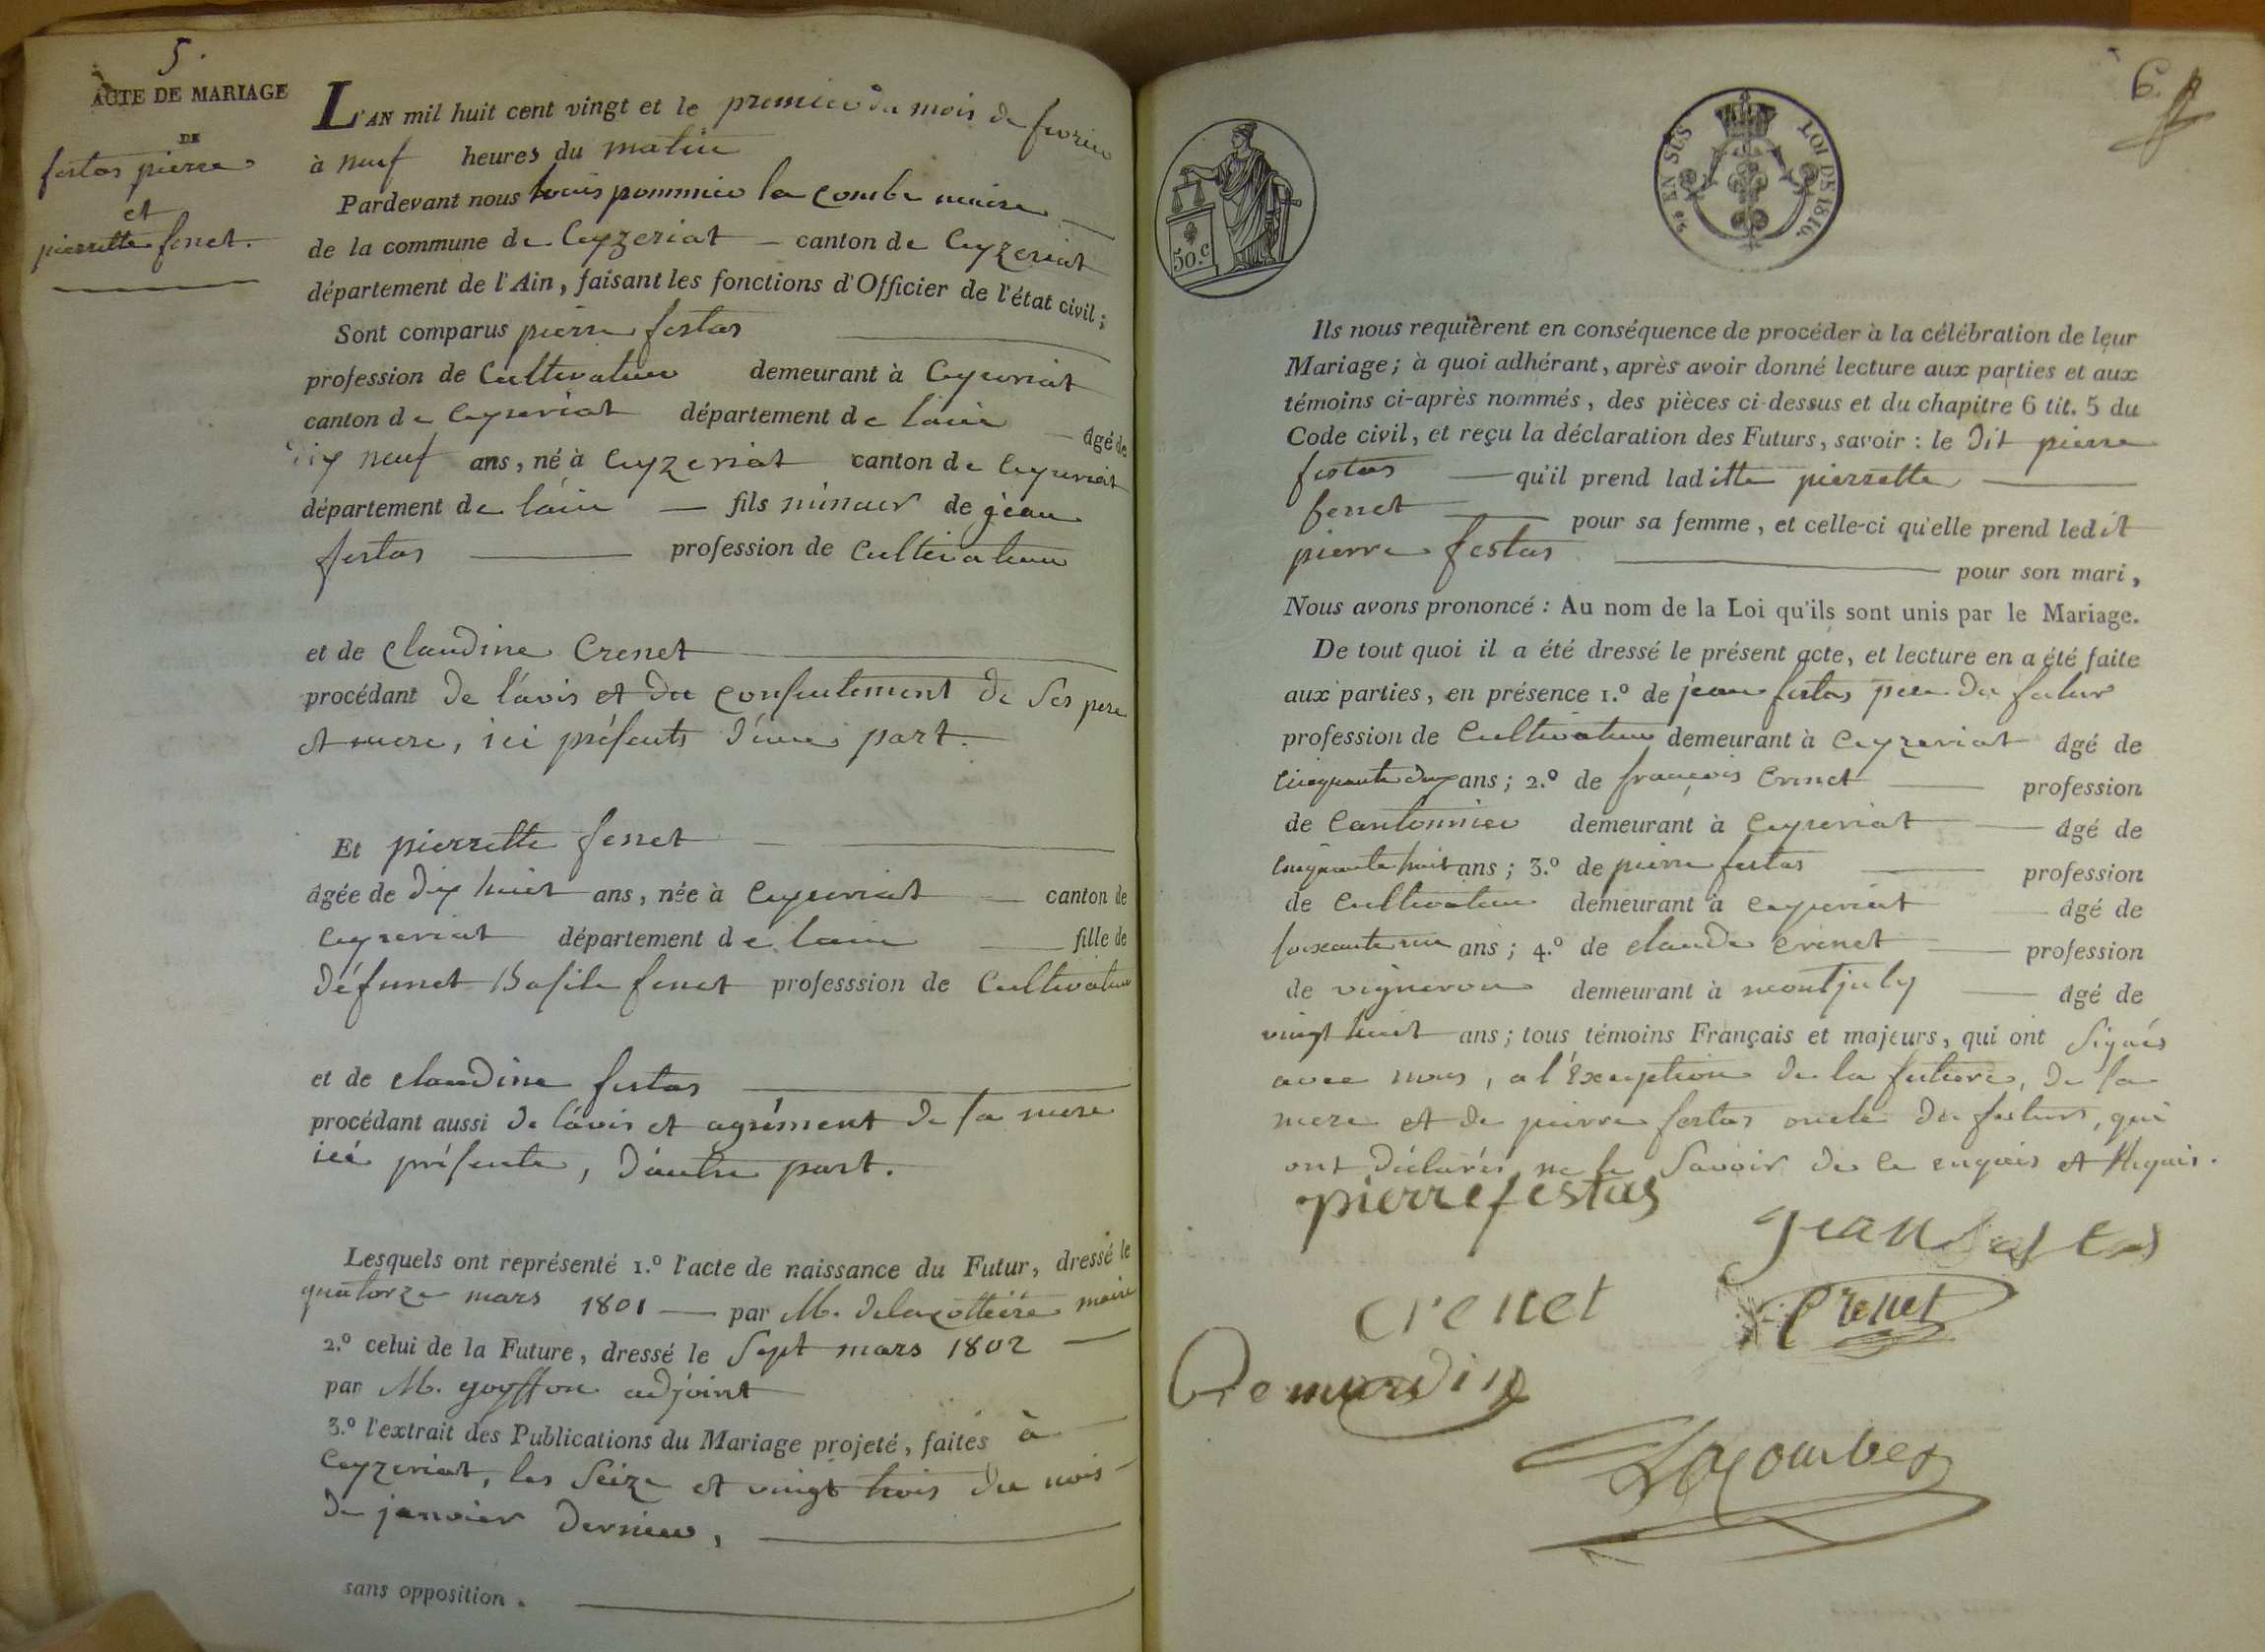 5.
ACTE DE MARIAGE
DE
festas pierre
et
pierrette fenet.
L'AN mil huit cent vingt et le premier du mois de fevrier
à neuf heures du matin
Pardevant nous louis pommier la combe maire
de la commune de Ceyzeriat canton de Ceyzeriat
département de l'Ain, faisant les fonctions d'Officier de l'état civil;
Sont comparus pierre festas
profession de Cultivateur demeurant à Ceyzeriat
canton de Ceyzeriat département de l'ain âgé de
dix neuf ans, né à Ceyzeriat canton de Ceyzeriat
département de l'ain fils mineur de jean
festas profession de Cultivateur
et de Claudine Crenet
procédant de l'avis et du consentement de ses pere
et mere, ici présents d'une part.
Et pierrette fenet
âgée de dix huit ans, née à Ceyzeriat canton de
Ceyzeriat département de l'ain fille de
défunct Basile fenet professsion de Cultivateur
et de claudine festas
procédant aussi de l'avis et agrément de sa mere
ici présente, d'autre part.
Lesquels ont représenté 1.º l'acte de naissance du Futur, dressé le
quatorze mars 1801 par M. delacottiere maire
2.º celui de la Future, dressé le Sept mars 1802
par M. goyffon adjoint
3.º l'extrait des Publications du Mariage projeté, faites à
Ceyzeriat, les Seize et vingt trois du mois
de janvier dernier,
sans opposition.
6.
50.c
LOI DE 1816.
EN SUS
Ils nous requièrent en conséquence de procéder à la célébration de leur
Mariage; à quoi adhérant, après avoir donné lecture aux parties et aux
témoins ci-après nommés, des pièces ci-dessus et du chapitre 6 tit. 5 du
Code civil, et reçu la déclaration des Futurs, savoir: le dit pierre
festas qu'il prend laditte pierrette
fenet pour sa femme, et celle-ci qu'elle prend ledit
pierre festas pour son mari,
Nous avons prononcé: Au nom de la Loi qu'ils sont unis par le Mariage.
De tout quoi il a été dressé le présent acte, et lecture en a été faite
aux parties, en présence 1.º de jean festas pere du futur
profession de Cultivateur demeurant à Ceyzeriat âgé de
cinquante deux ans; 2.º de françois Crenet profession
de Cantonnier demeurant à Ceyzeriat âgé de
cinquante huit ans; 3.º de pierre festas profession
de Cultivateur demeurant à Ceyzeriat âgé de
soixante un ans; 4.º de claude crenet profession
de vigneron demeurant à montjuly âgé de
vingt huit ans; tous témoins Français et majeurs, qui ont signés
avec nous, a l'exception de la future, de la
mere et de pierre festas oncle du futur, qui
ont déclarés ne le Savoir de ce enquis et requis.
pierre festas
jean festas
crenet
Crenet
Lacombe